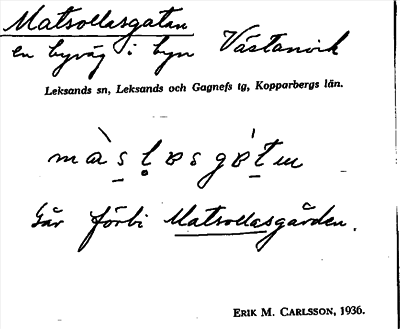 Matsollasgatan
en byväg i byn Västanvik
Leksands sn, Leksands och Gagnefs tg, Kopparbergs län.
går förbi Matsollasgården.
ERIK M. CARLSSON, 1936.